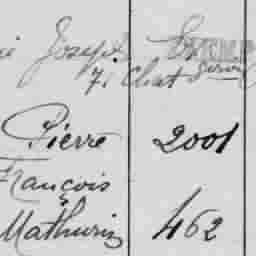 Joseph
7. Chat
Pierre 2001
François
Mathurin 462